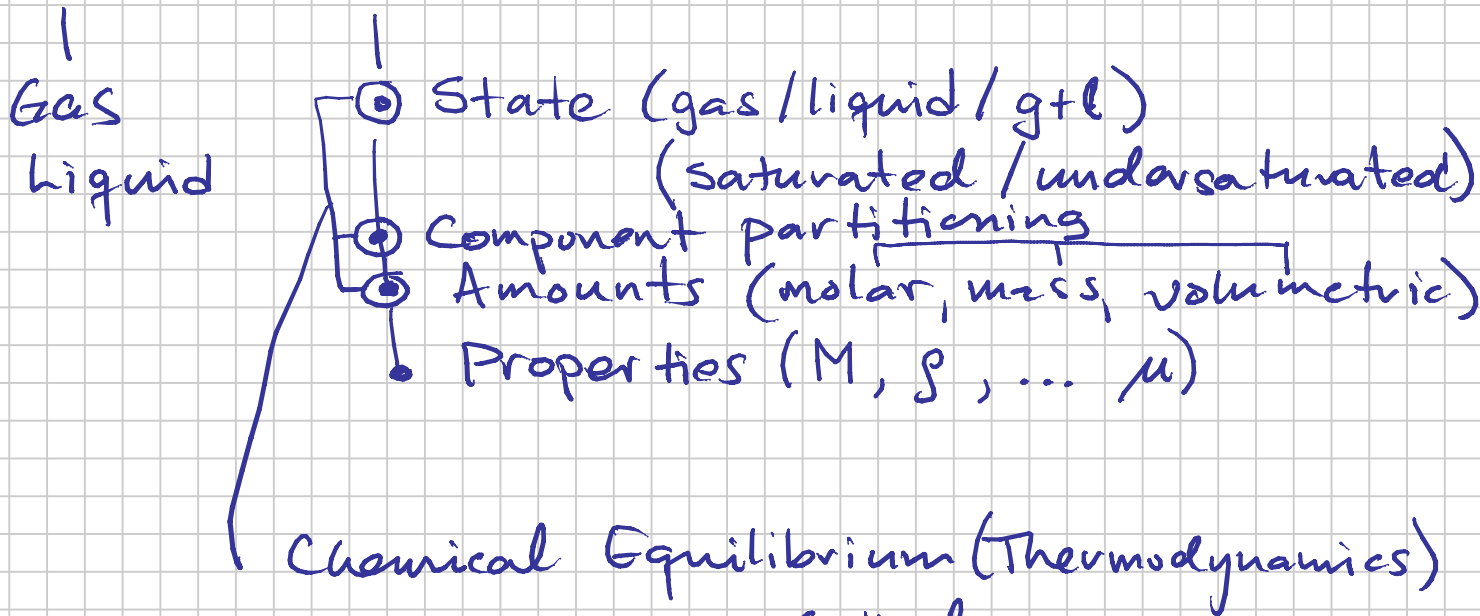 Gas
State (gas/liquid/g+l)
Liquid
(saturated/undersaturated)
Component partitioning
Amounts (molar, mass, volumetric)
Properties (M, ρ, ... μ)
Chemical Equilibrium (Thermodynamics)